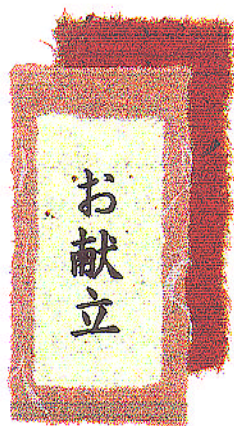 お献立